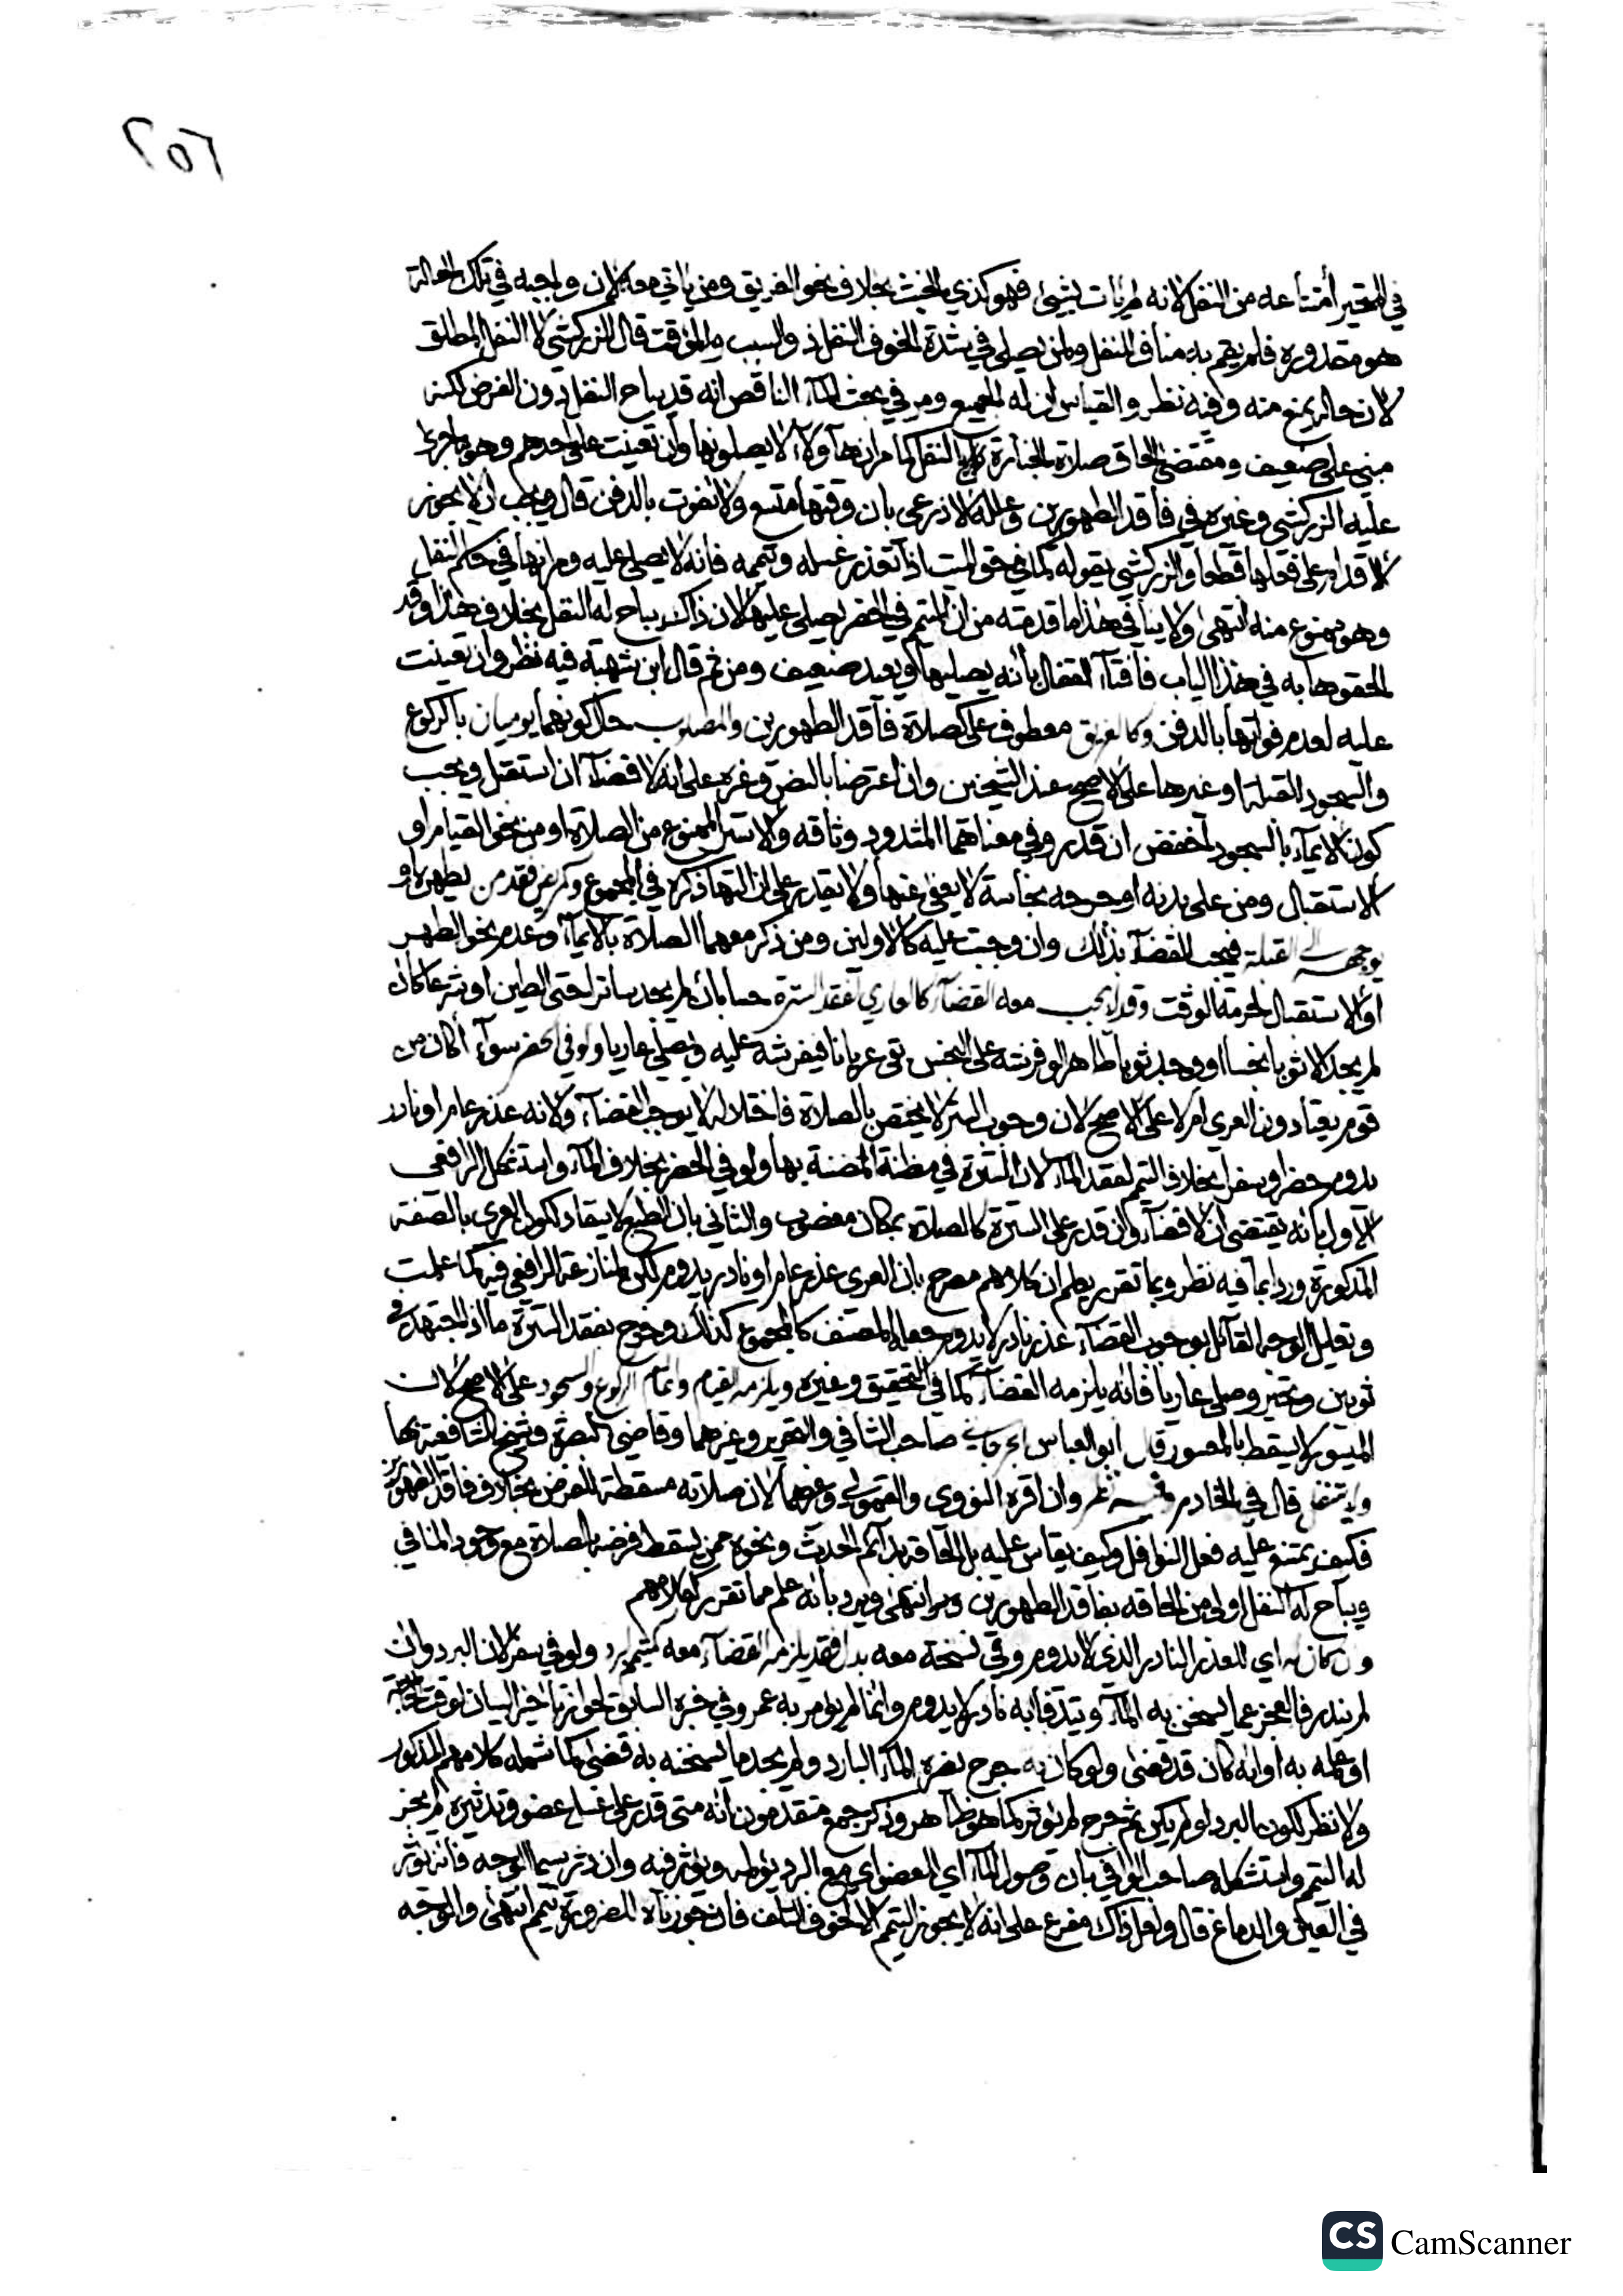 ٢٥٦
في المتحير امتناعه من النفل لانه لم يات بشيئ فهو كذي الخبث بخلاف نحو الغريق ومن ياتي معه لان واجبه في تلك الحالة
هو مقدوره فلم يقم به مناف للنفل ولمن يصلي في شدة الخوف النفل ذو السبب والمؤقت قال الزركشي لا النفل المطلق
لان حاله يمنع منه وفيه نظر والقياس ان له الجميع ومر في بحث الماء الناقص انه قد يباح النفل دون الفرض لكنه
مبني على ضعيف ومقتضى الحاق صلاة الجنازة بالنفل كما مر ان هاؤلاء لا يصلونها وان تعينت على احدهم وهو ما جرى
عليه الزركشي وغيره في فاقد الطهورين وعلله الاذرعي بان وقتها متسع ولا تفوت بالدفن قال ويجب ان لا يجوز
الاقدام على فعلها قطعا والزركشي بقوله كما في حق الميت اذا تعذر غسله وتيممه فانه لا يصلى عليه ومر انها في حكم النفل
وهو ممنوع منه انتهى ولا ينافي هذا ما قدمته من ان المتيمم في الحضر يصلي عليها لان ذاك يباح له النفل بخلاف هذا وقد
الحقوها به في هذا الباب فافتاء القفال بأنه يصليها ويعيد ضعيف ومن ثم قال ابن شهبة فيه نظر وان تعينت
عليه لعدم فواتها بالدفن وكالغريق معطوف على كصلاة فاقد الطهورين والمصلوب حال كونهما يوميان بالركوع
والسجود للقبلة او غيرها على الاصح عند الشيخين وان اعترضا بالنص وغيره على انه لا قضاء ان استقبل ويجب
كون الايماء بالسجود اخفض ان قدر وفي معناهما المشدود وثاقه والاسير الممنوع من الصلاة او من نحو القيام او
الاستقبال ومن على بدنه او جرحه نجاسة لا يعفى عنها ولا يقدر على ازالتها ذكره في المجموع ومريض فقد من يطهره او
يوجهه الى القبلة فيجب القضاء بذلك وان وجبت عليه كالاولين ومن ذكر معهما الصلاة بالايماء وعدم نحو الطهر
او الاستقبال لحرمة الوقت وقد لا يجب معه القضاء كالعاري لفقد السترة حسا بان لم يجد ساترا حتى الطين او شرعا كان
لم يجد الا ثوبا نجسا او وجد ثوبا طاهرا لو فرشه على النجس بقى عريانا فيفرشه عليه ويصلي عاريا ولو في الحضر سواء أكان من
قوم يعتادون العري ام لا على الاصح لان وجوب الستر لا يختص بالصلاة فاختلاله لا يوجب القضاء ولانه عذر عام او نادر
يدوم حضرا وسفرا بخلاف التيمم لفقد الماء لان السترة في مظنة الضنة بها ولو في الحضر بخلاف الماء واستشكل الرافعي
الاول بانه يقتضي ان لا قضاء وان قدر على السترة كالصلاة بمكان مغصوب والثاني بان الطبع لا ينقاد لكون العري بالصفة
المذكورة وردا بما فيه نظر وبما تقرر يعلم ان كلامهم مصرح بان العري عذر عام او نادر يدوم لكن لمنازعة الرافعي فيه كما علمت
وتعليل الوجه القائل بوجوب القضاء عذر نادر لا يدوم جعله المصنف كالمجموع كذلك وخرج بفقد السترة ما اذا اجتهد في
ثوبين وتحير وصلى عاريا فانه يلزمه القضاء كما في التحقيق وغيره ويلزمه القيام واتمام الركوع والسجود على الاصح لان
الميسور لا يسقط بالمعسور قال ابو العباس الجرجاني صاحب الشافي والتحرير وغيرهما وقاضي البصرة وشيخ الشافعية بها
ولا يتنفل قال في الخادم وفيه نظر وان اقره النووي والقمولي وغيرهما لان صلاته مسقطة للفرض بخلاف فاقد الطهورين
فكيف يمتنع عليه فعل النوافل وكيف يقاس عليه بل الحاقه بدائم الحدث ونحوه ممن يسقط فرضه بالصلاة مع وجود المنافي
ويباح له النفل اولى من الحاقه بفاقد الطهورين انتهى ويرد بانه علم مما تقرر كلامهم
وان كان اي العذر النادر الذي لا يدوم وفي نسخة معه بدل فقد يلزمه القضاء معه كتيمم لبرد ولو في سفر لان البرد وان
لم يندر فالعجز عما يسخن به الماء ويتدفأ به نادر لا يدوم وانما لم يؤمر به عمرو في خبره السابق لجواز تاخير البيان لوقت الحاجة
او علمه به او انه كان قد قضى ولو كان به جرح يضره الماء البارد ولم يجد ما يسخنه به قضى كما شمله كلامهم المذكور
ولا نظر لكون البرد لو لم يكن ثم جرح لم يؤثر كما هو ظاهر وذكر جمع متقدمون انه متى قدر على غسل عضو وتدثيره لم يجز
له التيمم واستشكله صاحب الوافي بان وصول الماء اي العضو اي مع البرد يؤلمه ويؤثر فيه وان دثر سيما الوجه فانه يؤثر
في العين والدماغ قال ولعل ذاك مفرع على انه لا يجوز التيمم الا لخوف التلف فان جوزناه للضرورة تيمم انتهى والوجه
CS CamScanner